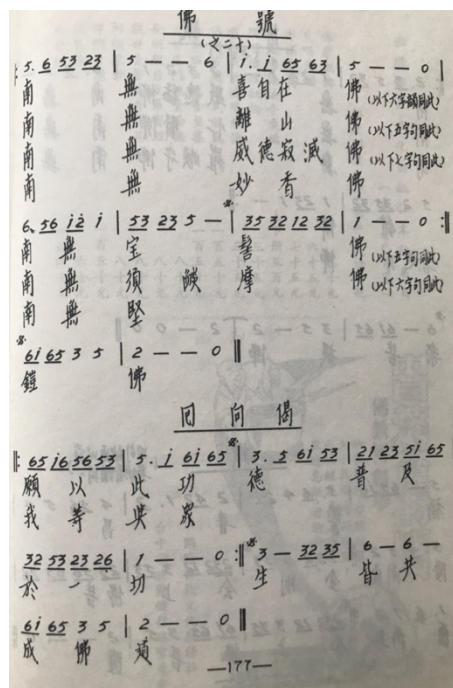 佛 號
(之二十)
5. 6 53 23 | 5 — — 6 | i. i 65 63 | 5 — — 0 |
南 無 喜自在 佛(以下六字韻同此)
南 無 離 山 佛(以下五字句同此)
南 無 威德寂滅 佛(以下七字句同此)
南 無 妙 香 佛
6. 56 i2 i | 53 23 5 — | 35 32 12 32 | 1 — — 0 :||
南 無 宝 髻 佛(以下五字句同此)
南 無 須 摩 佛(以下六字句同此)
南 無 堅
6i 65 3 5 | 2 — — 0 ||
鎧 佛
回 向 偈
||: 65 i6 56 53 | 5. i 6i 65 | 3. 5 6i 53 | 21 23 5i 65
願 以 此 功 德 普 及
我 等 與 眾
32 53 23 26 | 1 — — 0 :|| 3 — 32 35 | 6 — 6 —
於 一 切 生 皆 共
6i 65 3 5 | 2 — — 0 ||
成 佛 道
—177—